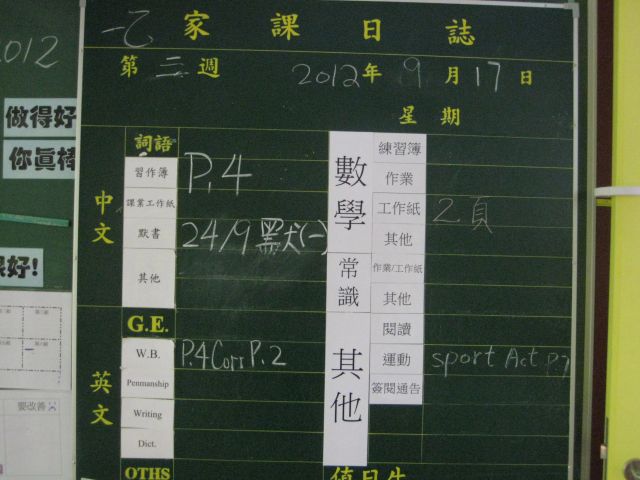 2012
一乙 家課日誌
第 三 週 2012年 9 月 17 日
星期
做得好
你真棒
好!
要改善
中文
詞語
習作簿 P.4
課業工作紙
默書 24/9 默(一)
其他
英文
G.E.
W.B. P.4 Corr P.2
Penmanship
Writing
Dict.
OTHS
數學
練習簿
作業
工作紙 2頁
其他
常識
作業/工作紙
其他
其他
閱讀
運動 sport Act P.7
簽閱通告
值日生